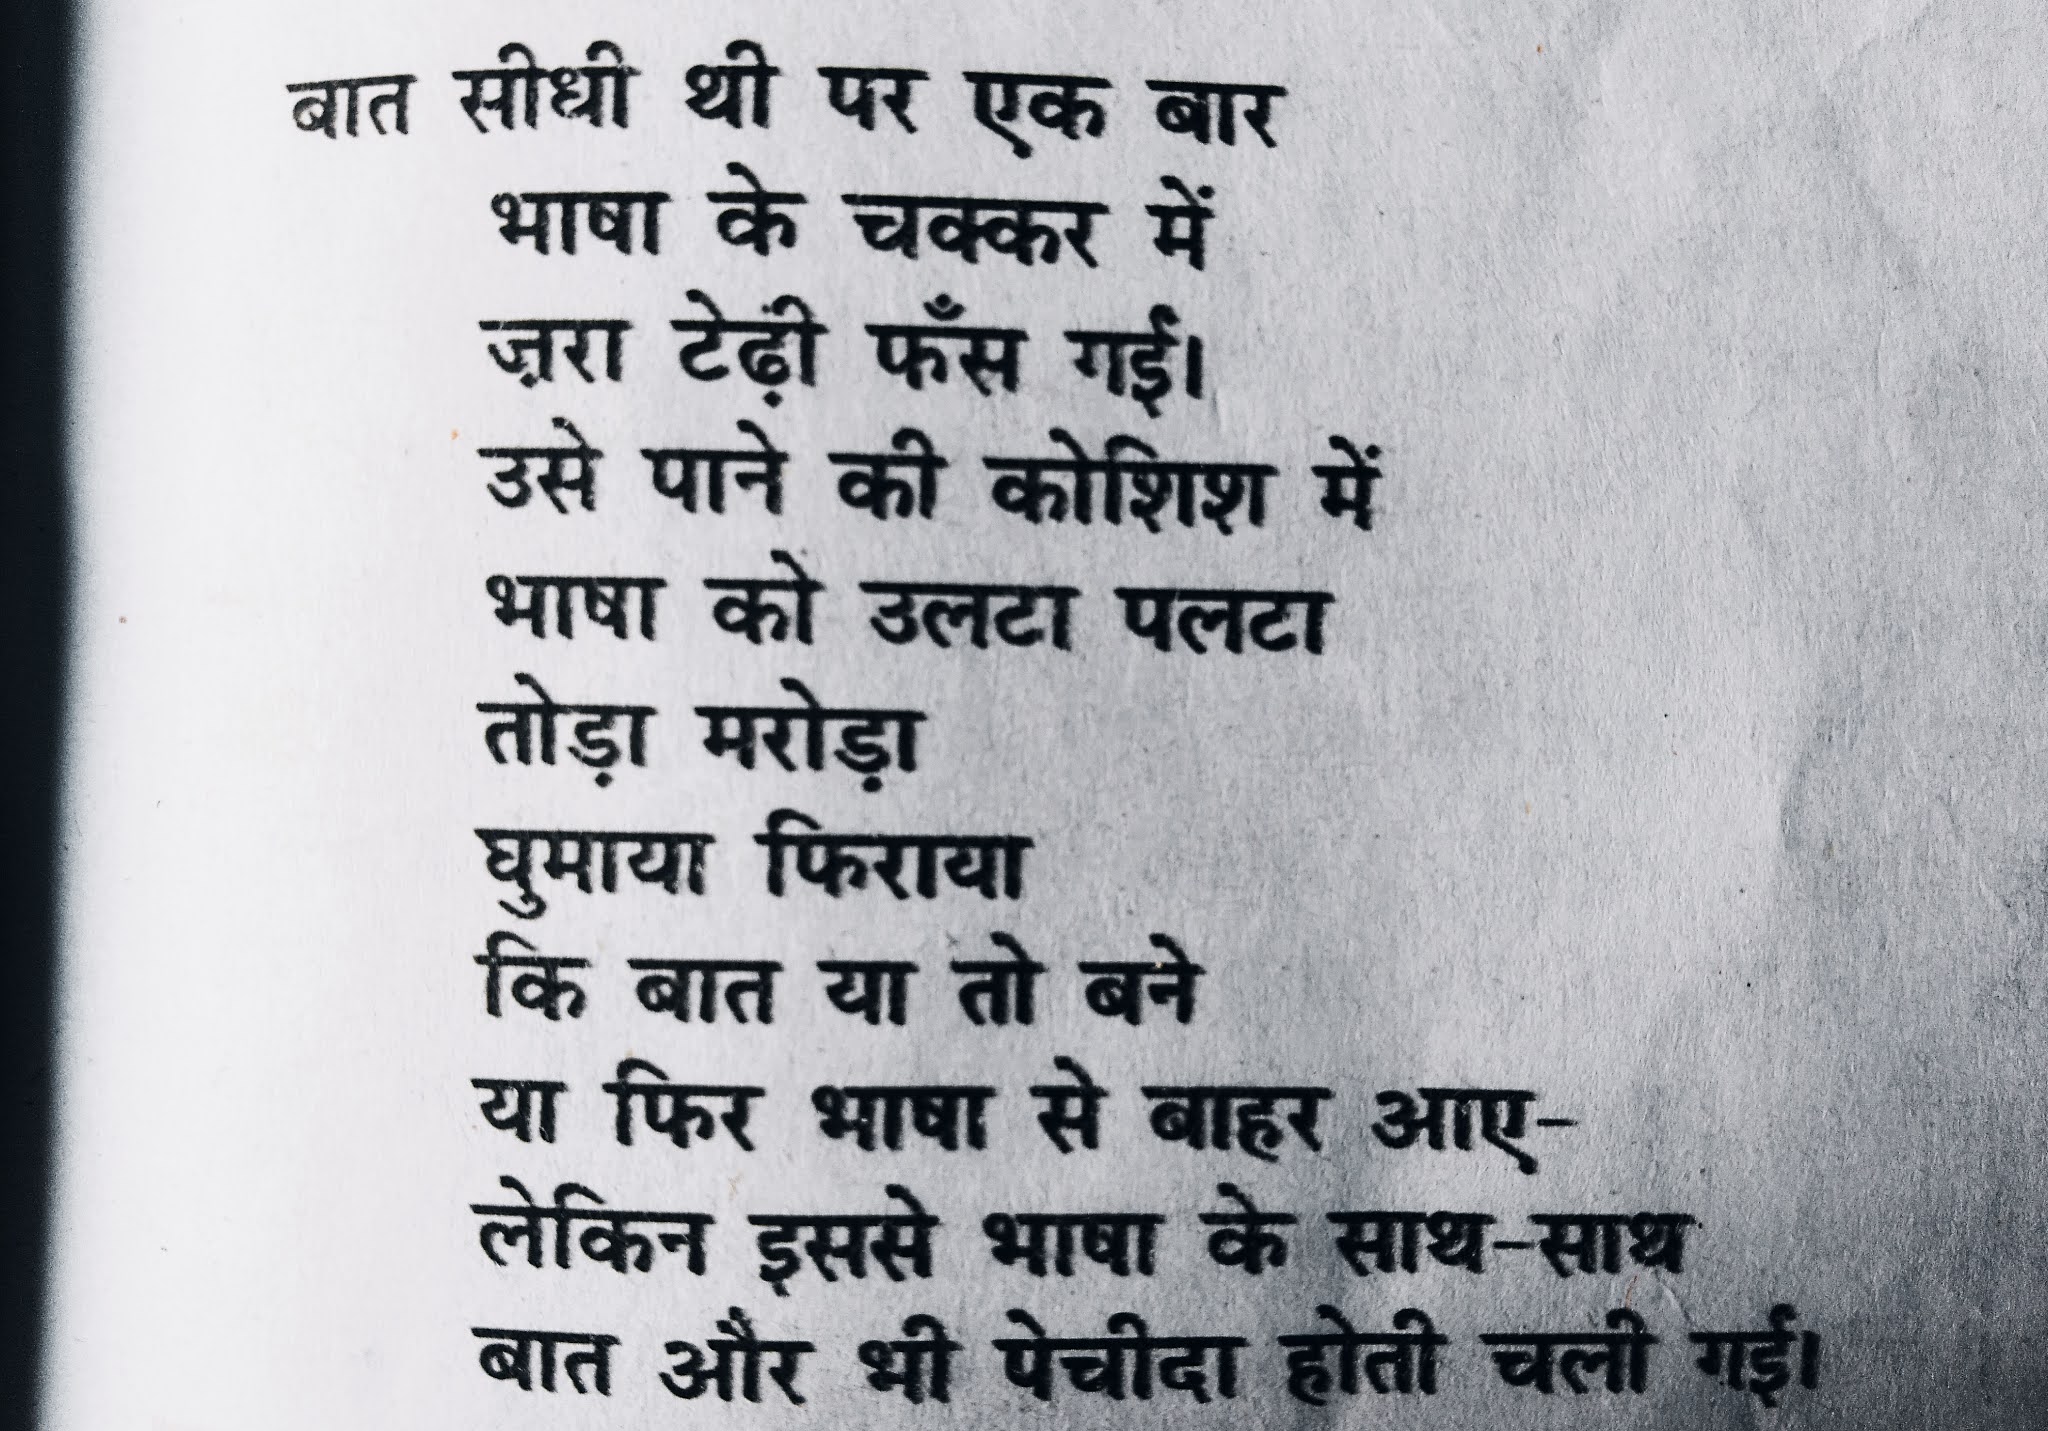 बात सीधी थी पर एक बार
भाषा के चक्कर में
ज़रा टेढ़ी फँस गई।
उसे पाने की कोशिश में
भाषा को उलटा पलटा
तोड़ा मरोड़ा
घुमाया फिराया
कि बात या तो बने
या फिर भाषा से बाहर आए-
लेकिन इससे भाषा के साथ-साथ
बात और भी पेचीदा होती चली गई।